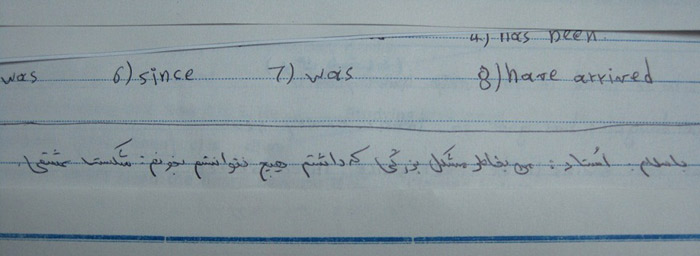 4) has been.
was 6) since 7) was 8) have arrived
باسلام. استاد: من بخاطر مشکل بزرگی که داشتم هیچ نتوانستم بخونم: شکست عشقی.